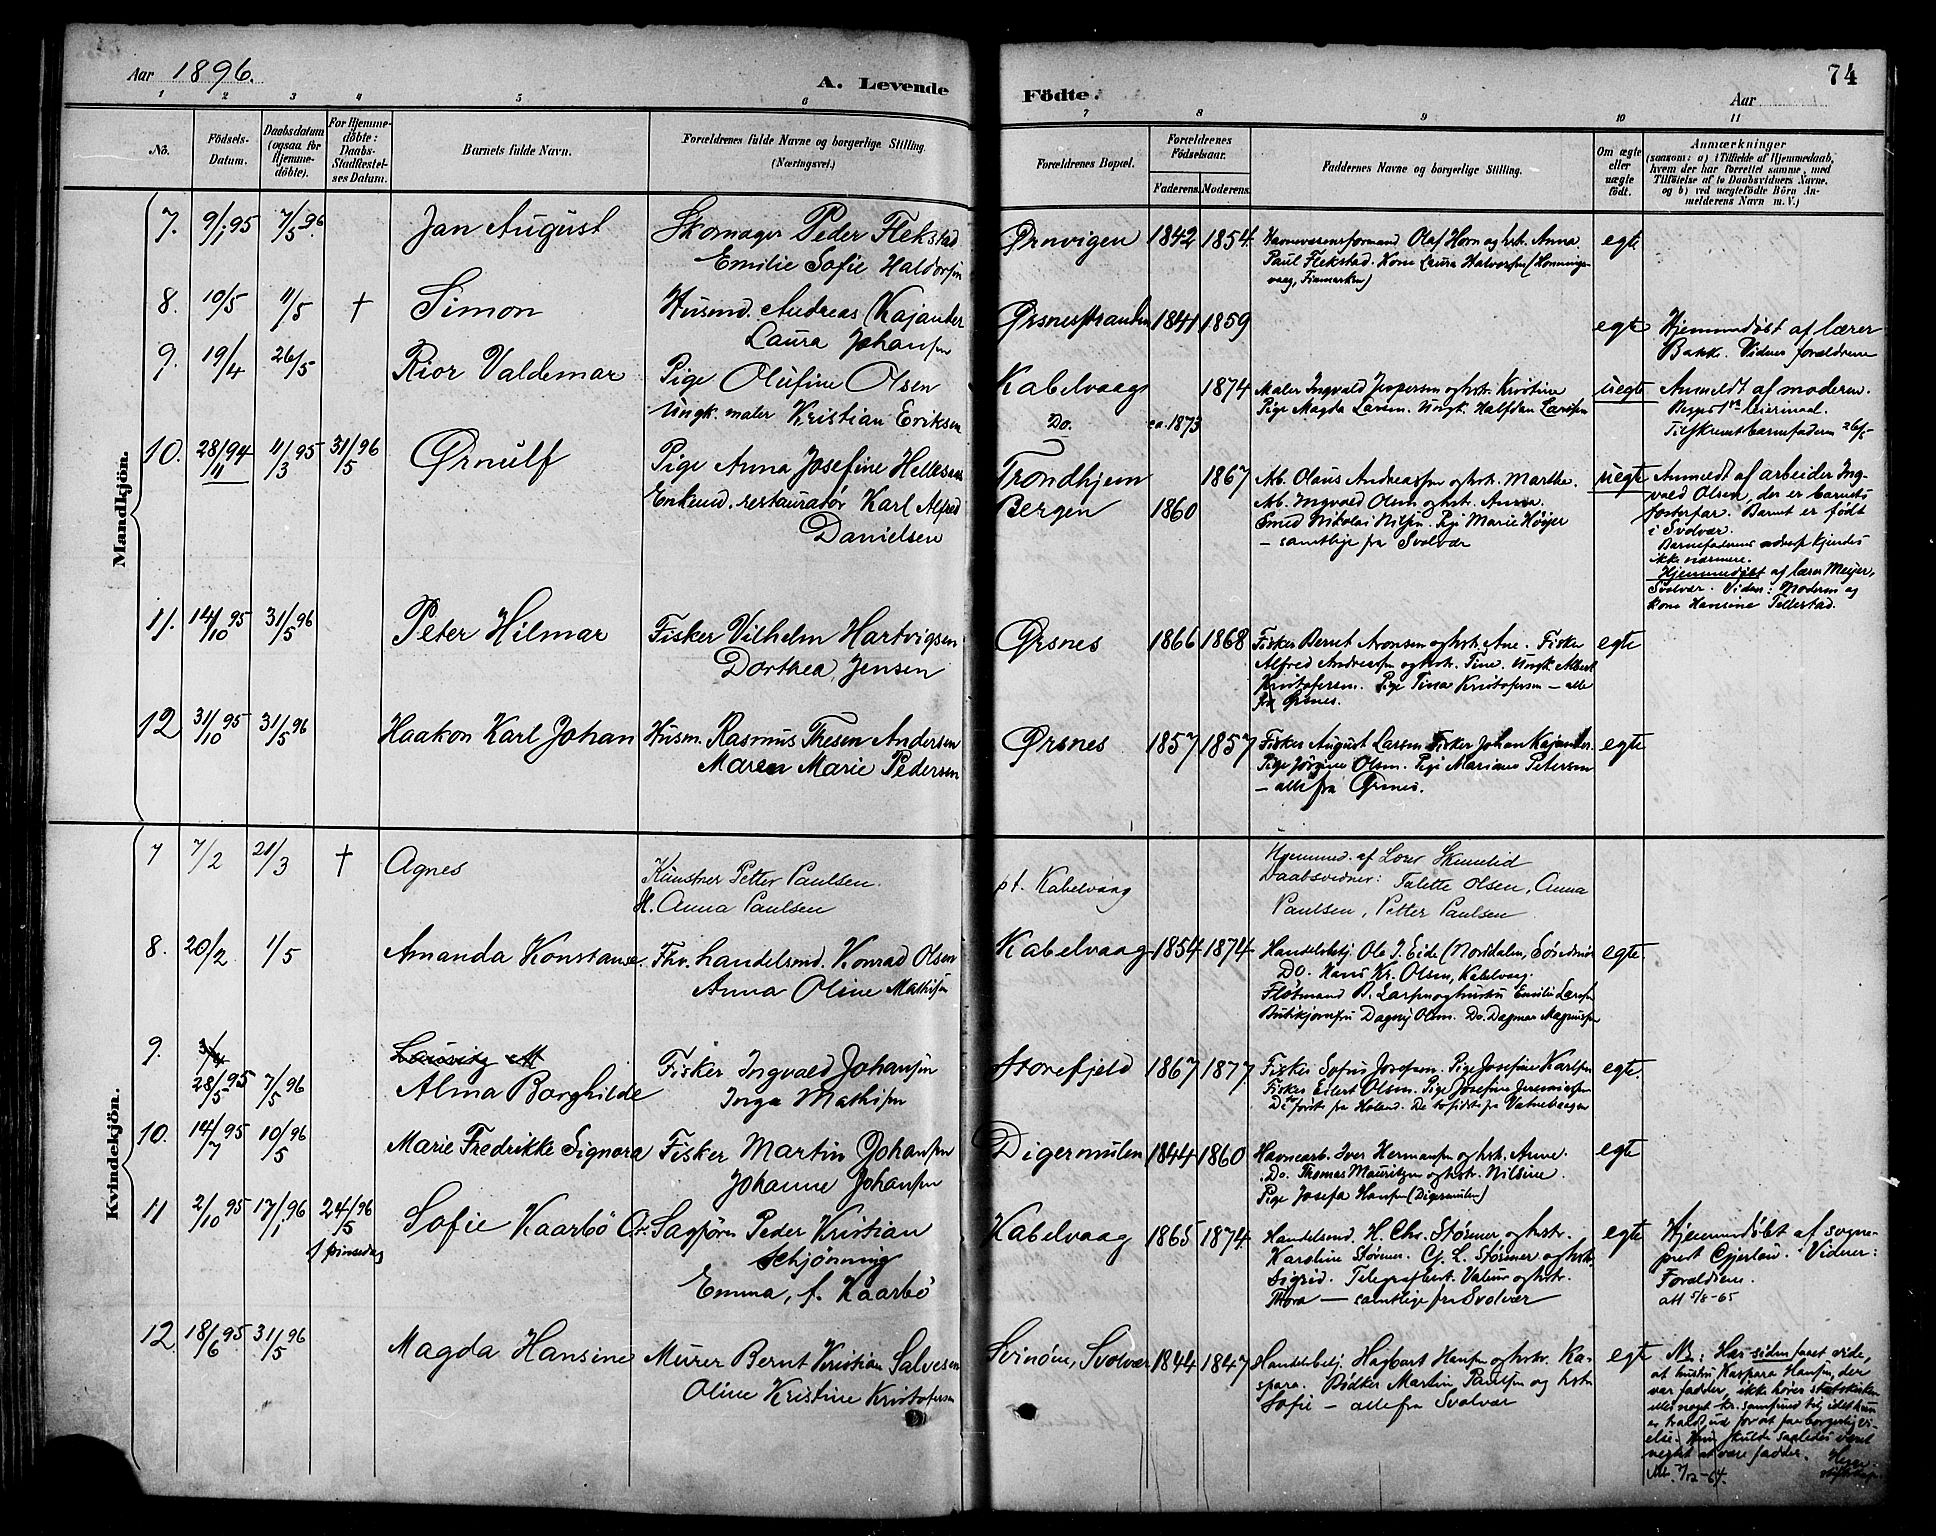 Aar 1896.
A. Levende Födte.
74
Aar
1 2 3 4 5 6 7 8 9 10 11
No.
Födsels-Datum.
Daabsdatum (ogsaa for Hjemme-döbte).
For Hjemme-döbte: Daabs-Stadfæstel-ses Datum.
Barnets fulde Navn.
Forældrenes fulde Navne og borgerlige Stilling. (Næringsvei.)
Forældrenes Bopæl.
Forældrenes Födselsaar.
Faderens. Moderens.
Faddernes Navne og borgerlige Stilling.
Om ægte eller uægte födt.
Anmærkninger
(saasom: a) i Tilfælde af Hjemmedaab, hvem der har forrettet samme, med Tilföielse af to Daabsvidners Navne, og b) ved uægtefödte Börn Anmelderens Navn m. V.)
Mandkjön.
7. 9/1 95 7/5 96. Jan August
Skomager Peder Flekstad
Emilie Sofie Haldorsen
Ørnvigen 1842 1854
Havnevæsensformand Olaf Horn og hstr. Anna.
Paul Flekstad. Kone Laura Halvorsen (Honnings-
vaag, Finmarken)
egte
8. 10/5 11/5 † Simon
Husmd. Andreas Kajander
Laura Johansen
Ørsnesstranden 1841 1859
egte
Hjemmedøbt af lærer
Bakk. Vidner forældrene
9. 19/4 26/5 Rior Valdemar
Pige Olufine Olsen
Ungk. maler Kristian Eriksen
Kabelvaag 1874
Do. ca. 1873
Maler Ingvald Jespersen og hstr. Kristine
Pige Magda Larsen. Ungk. Halfdan Larsen
uegte
Anmeldt af moderen.
Begges 1ste leiermaal.
Tilskrevet barnefaderen 26/5
10. 28/11 94 11/3 95 31/5 96 Ørnulf
Pige Anna Josefine Hellesen
Enkemd. restauratør Karl Alfred
Danielsen
Trondhjem 1867
Bergen 1860
Arb. Olaus Andreassen og hstr. Marthe.
Arb. Ingvald Olsen og hstr. Anna
Smed Nikolai Nilsen. Pige Marie Høyer
– samtlige fra Svolvær
uegte
Anmeldt af arbeider Ing-
vald Olsen, der er barnets
fosterfar. Barnet er født
i Svolvær.
Barnefaderens adresse kjendes
ikke nærmere.
Hjemmedøbt af lærer Meyer,
Svolvær. Vidner: Moderen og
kone Hansine Tellestad.
11. 14/10 95 31/5 96 Peter Hilmar
Fisker Vilhelm Hartvigsen
Dorthea Jensen
Ørsnes 1866 1868
Fisker Berret Aronsen og hstr. Ane. Fisker
Alfred Andreassen og hstr. Tine. Ungk. Albert
Kristofersen. Pige Tina Kristofersen – alle
fra Ørsnes.
egte
12 31/10 95 31/5 96 Haakon Karl Johan
Husm. Rasmus Thesen Andersen
Maren Marie Pedersen
Ørsnes 1857 1857
Fisker August Larsen Fisker Johan Kajander.
Pige Jørgine Olsen. Pige Mariane Petersen
– alle fra Ørsnes.
egte
Kvindekjön.
7 7/2 21/3 † Agnes
Kunstner Petter Paulsen.
H. Anna Paulsen
pt. Kabelvaag
Hjemmed. af Lærer
Daabsvidner: Talette Olsen, Anna
Paulsen, Petter Paulsen
8. 20/2 1/5 Amanda Konstanse.
Fhv. handelsmd. Konrad Olsen
Anna Oline Mathisen
Kabelvaag 1854 1874
Handelsbetj. Ole J. Eide (Norddalen, Søndmør
Do. Hans Kr. Olsen, Kabelvaag.
Fløtmand B. Larsen og hustru Emilie Larsen
Butikjomfru Dagny Olsen. Do. Dagmar Magnussen
egte.
9. 28/5 95 7/5 96 Alma Borghilde
Fisker Ingvald Johansen
Inga Mathisen
Storefjeld 1867 1877
Fisker Sofus Josefsen. Pige Josefine Karlsen
Fisker Edert Olsen. Pige Josefine Jeremiassen
De første fra Holand. De to sidste fra
egte.
10. 14/7 95 10/5 96 Marie Fredrikke Signora
Fisker Martin Johansen
Johanne Johansen
Digermulen 1844 1860
Havnearb. Iver Hermansen og hstr. Anne.
Do. Thomas Mauritzen og hstr. Nilsine.
Pige Josefa Hansen (Digermulen)
egte
11 2/10 95 17/1 96 24/5 96
1 pinsedag
Sofie Kaarbö
Sagfører Peder Kristian
Schjønning
Emma, f. Kaarbö
Kabelvaag 1865 1874
Handelsmd. H. Chr. Størmer og hstr.
Karoline Størmer. C. L. Størmer og hstr.
Sigrid. Telegrafbest. Valeur og hstr.
Thora — samtlige fra Svolvær
egte
Hjemmedøbt af sogne-
prest Gjerløw. Vidner:
Forældrene.
att 5/8-65
12. 18/6 95 31/5 96 Magda Hansine
Murer Bernt Kristian Salvesen
Oline Kristine Kristofersen
Svinøen, Svolvær 1844 1847
Handelsbetj. Hagbart Hansen og hstr. Ka-
spara. Bødker Martin Paulsen og hstr.
Sofie – alle fra Svolvær
egte
NB: Har siden faaet vide,
at hustru Kaspara Hansen, der
var fadder, ikke hører statskirken
eller noget kr. samfund til, idet hun
er traadt ud for at faa borgerlig vi-
else. Hun skulde saaledes været
negtet at være fadder.
att. 7/12-64.